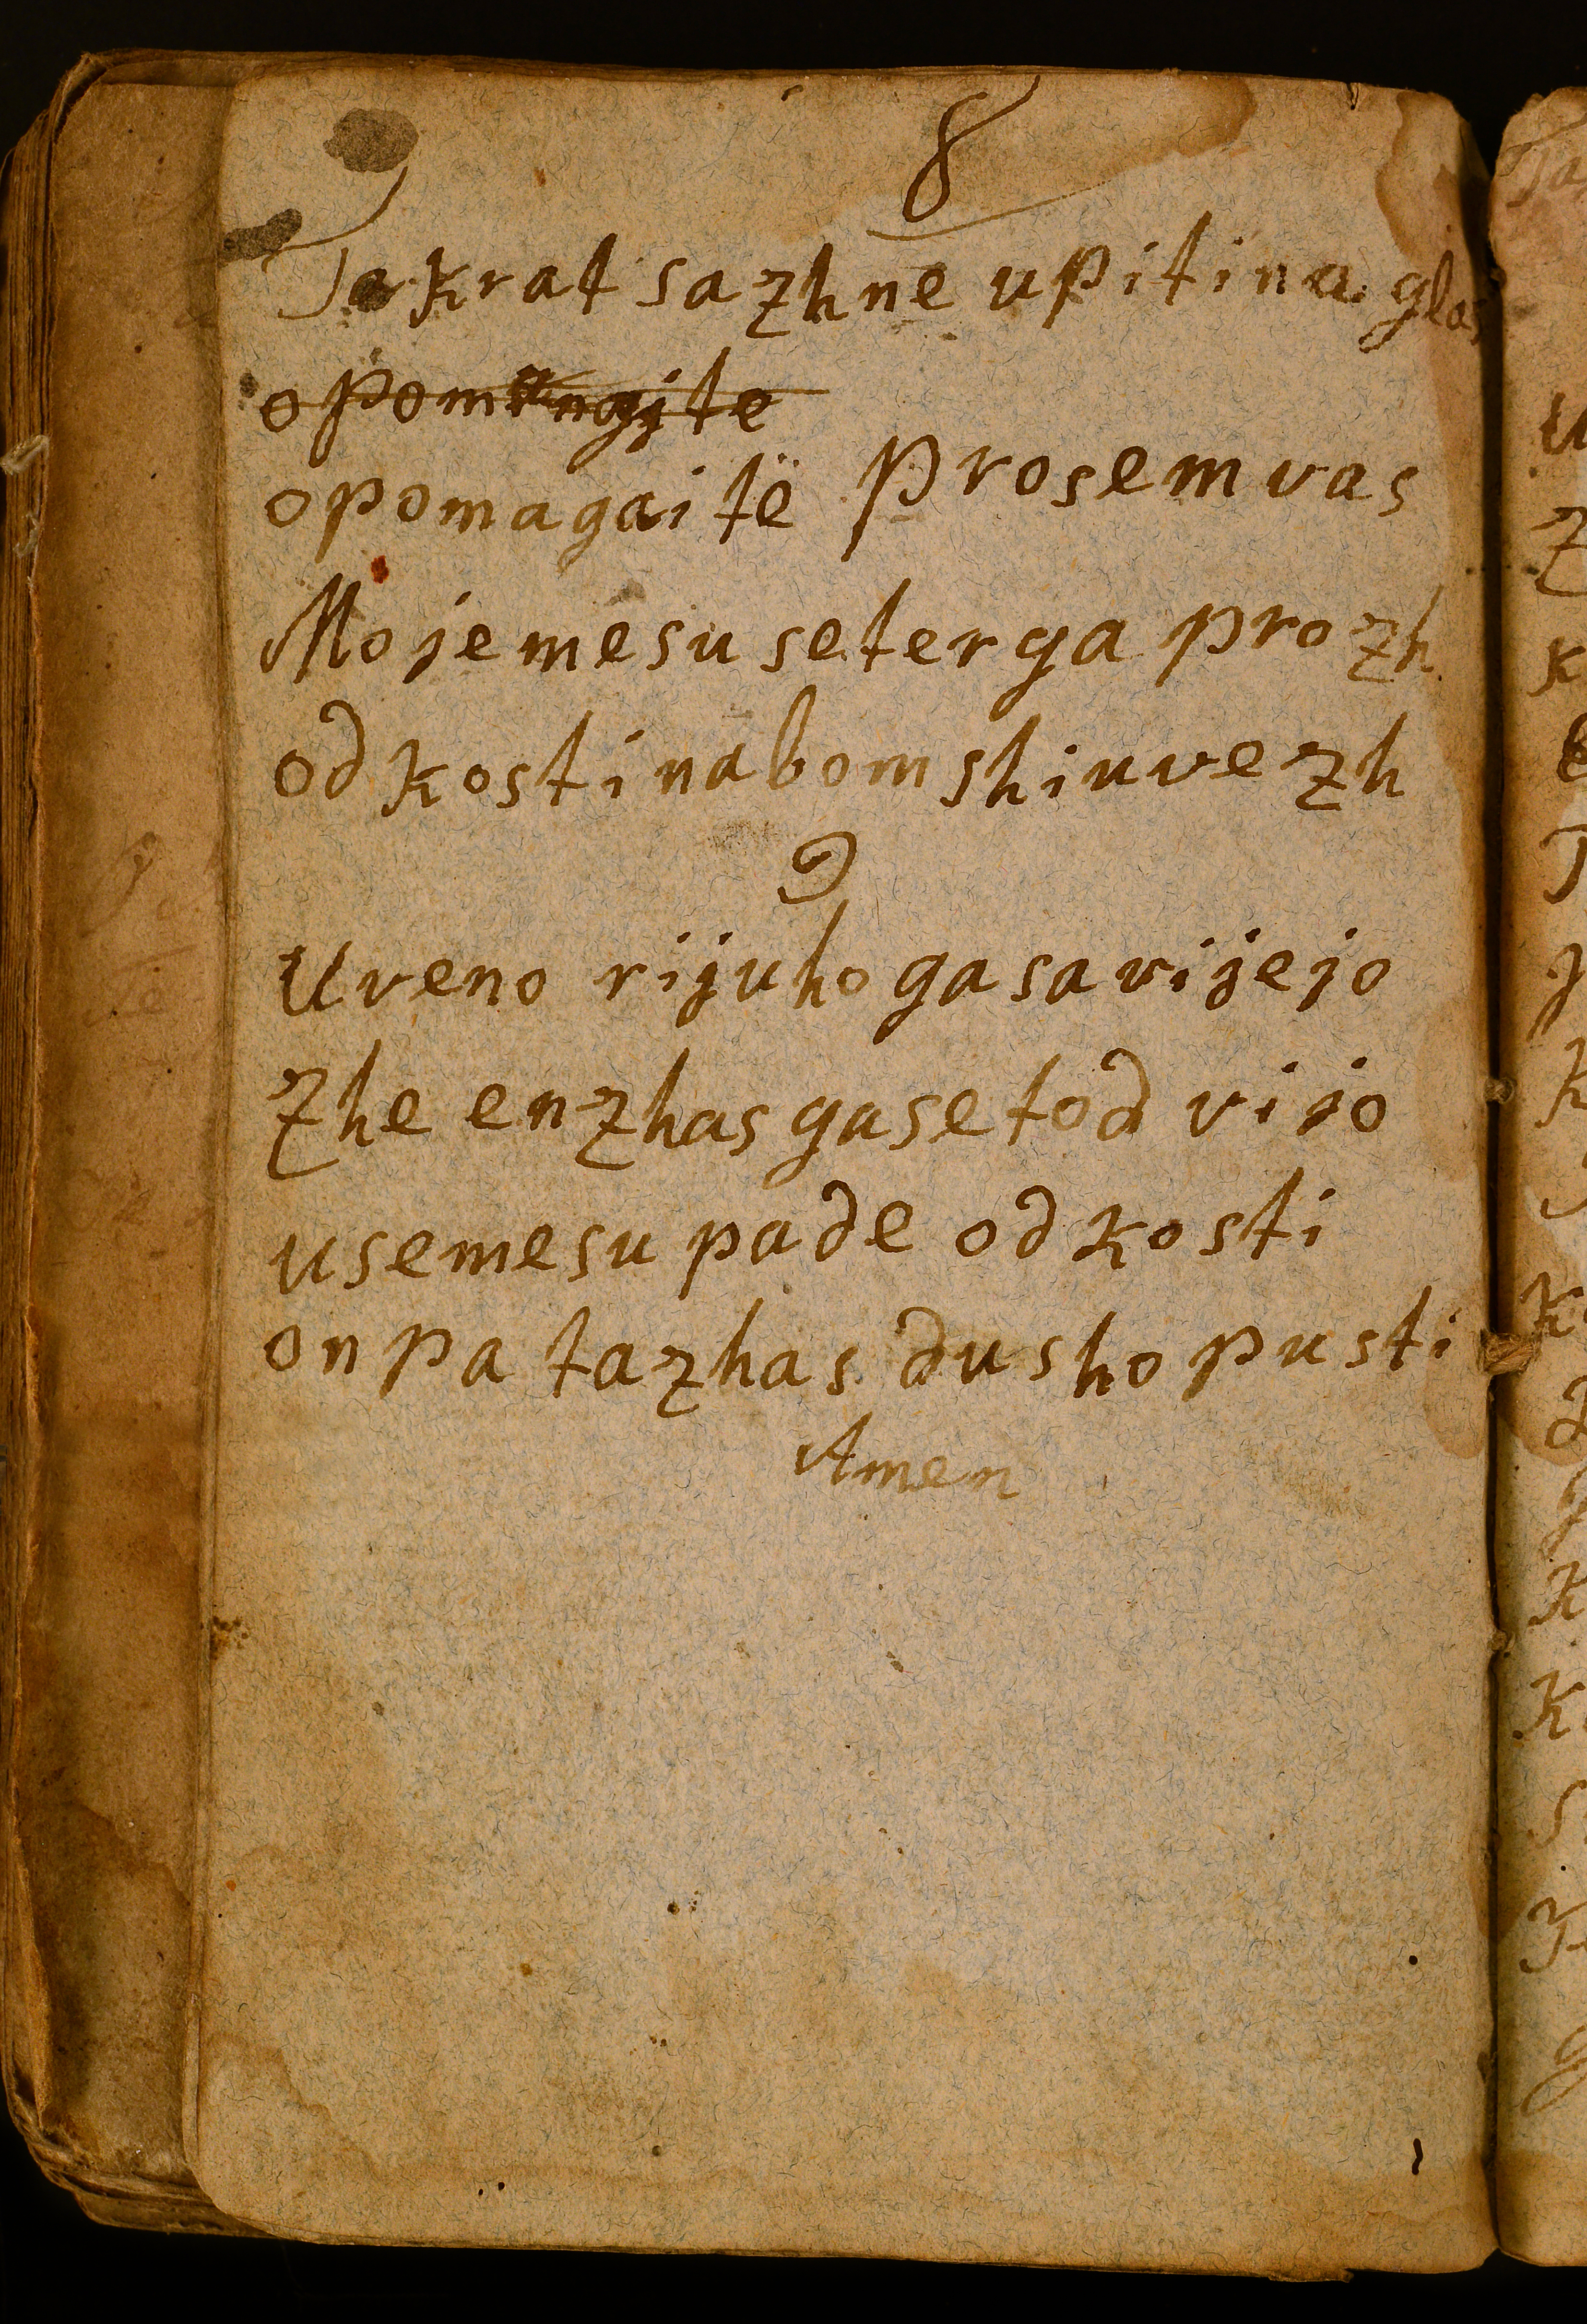 8
Takrat sazhne upitina glas
opomagaitë prosem vas
Moje mesu se terga prozh
od kosti nabom shiu vezh
9
Uveno rijuho ga savijejo
Zhe en zhas ga set od vijo
use mesu pade od kosti
on pa ta zhas dusho pusti
Amen